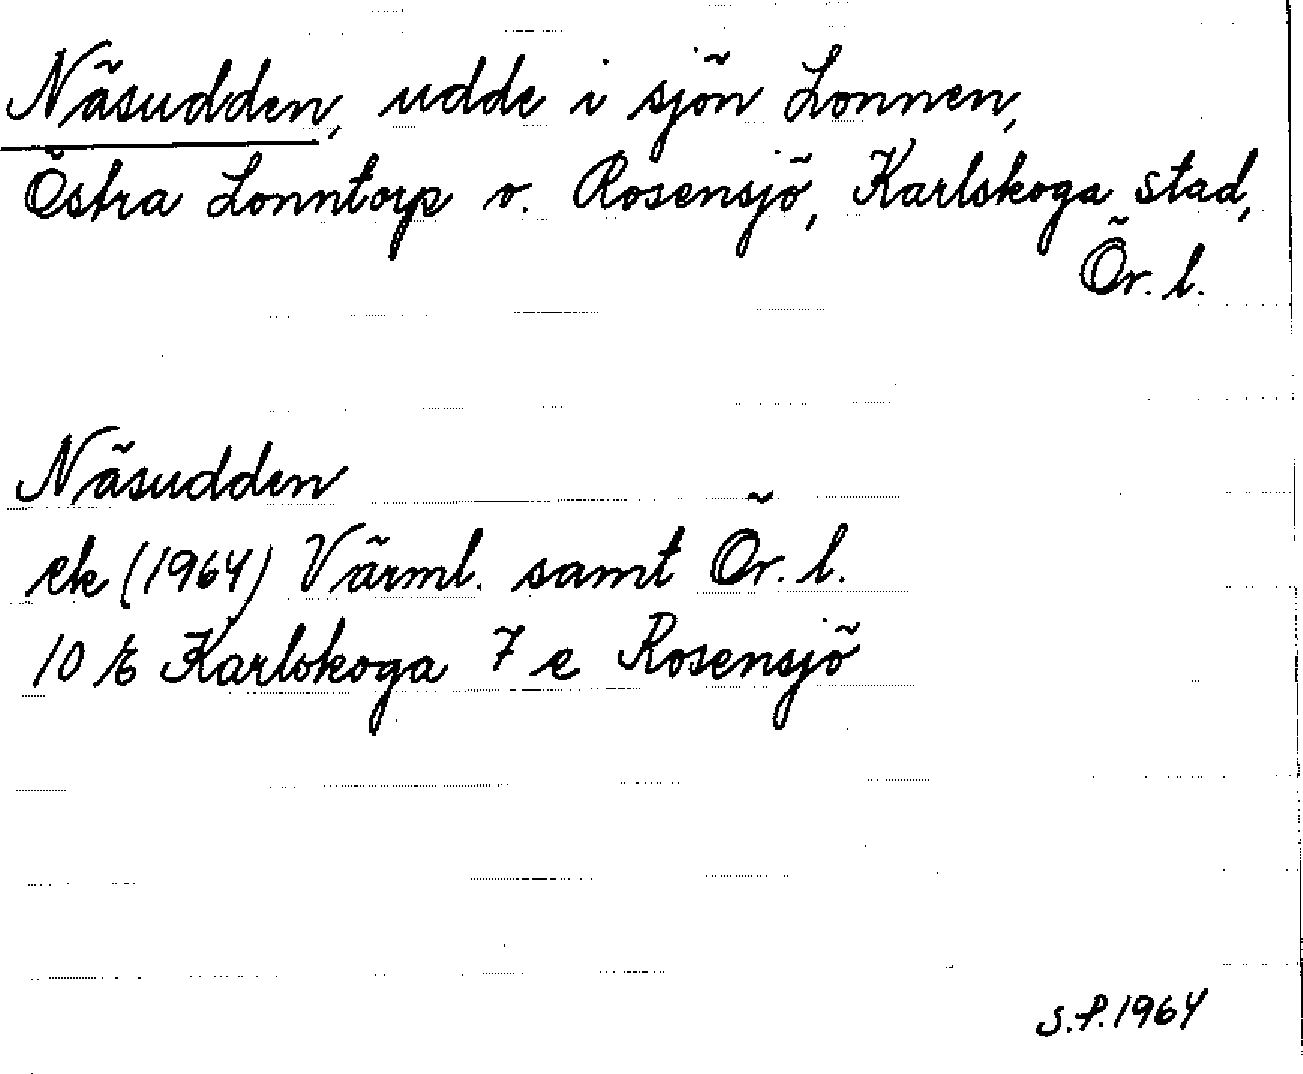 Näsudden, udde i sjön Lonnen,
Östra Lonntorp o. Rosensjö, Karlskoga stad,
Ör. l.
Näsudden
ek (1964) Värml. samt Ör. l.
10 E Karlskoga 7 e Rosensjö
S.P. 1964